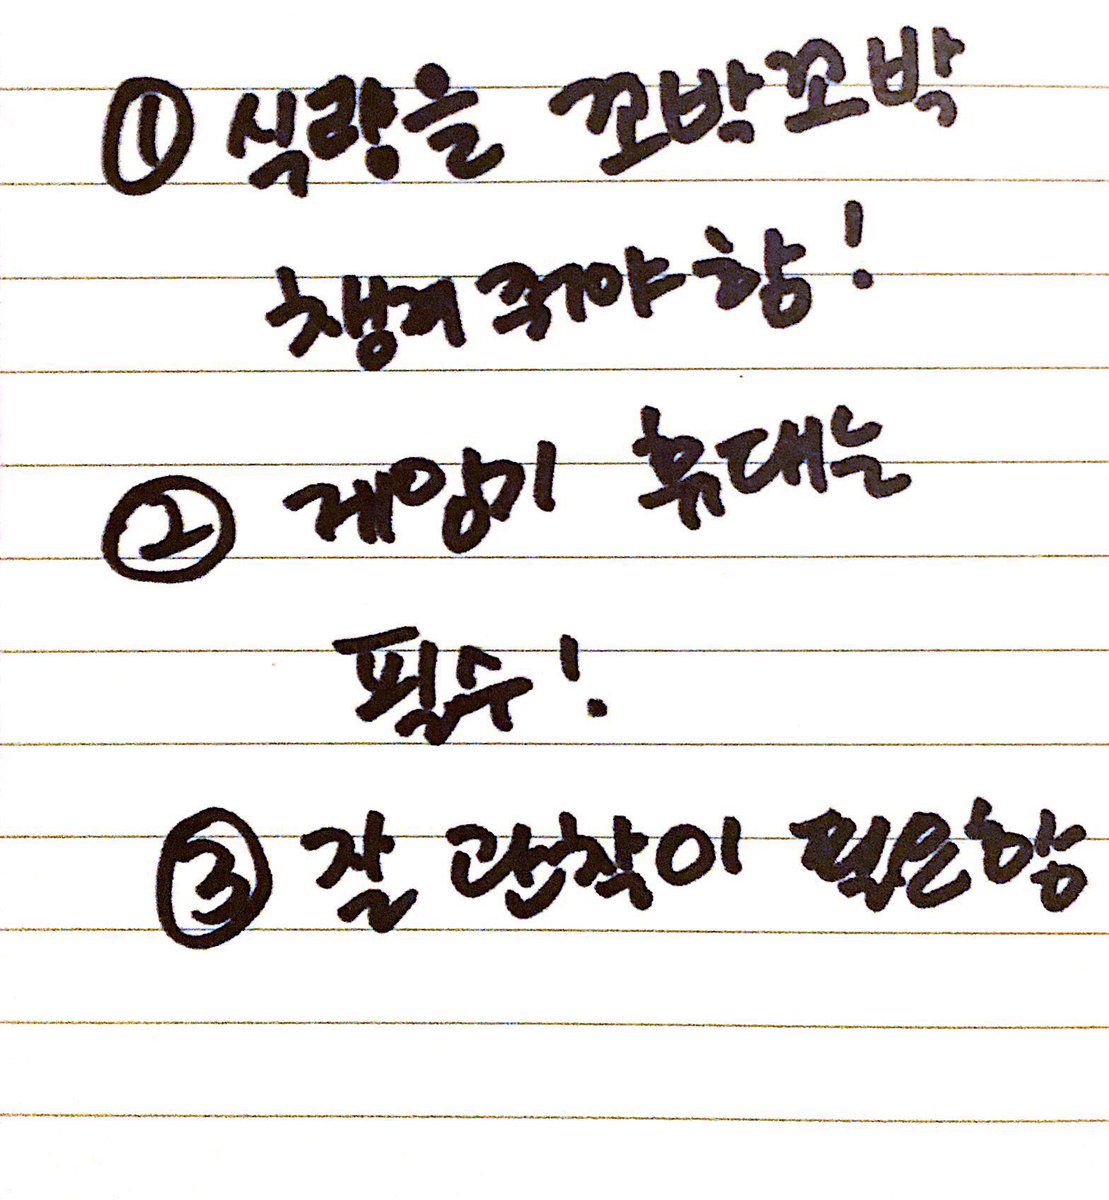 ① 식량을 꼬박꼬박
챙겨줘야 함!
② 게임기 휴대는
필수!
③ 잘 관찰이 필요함